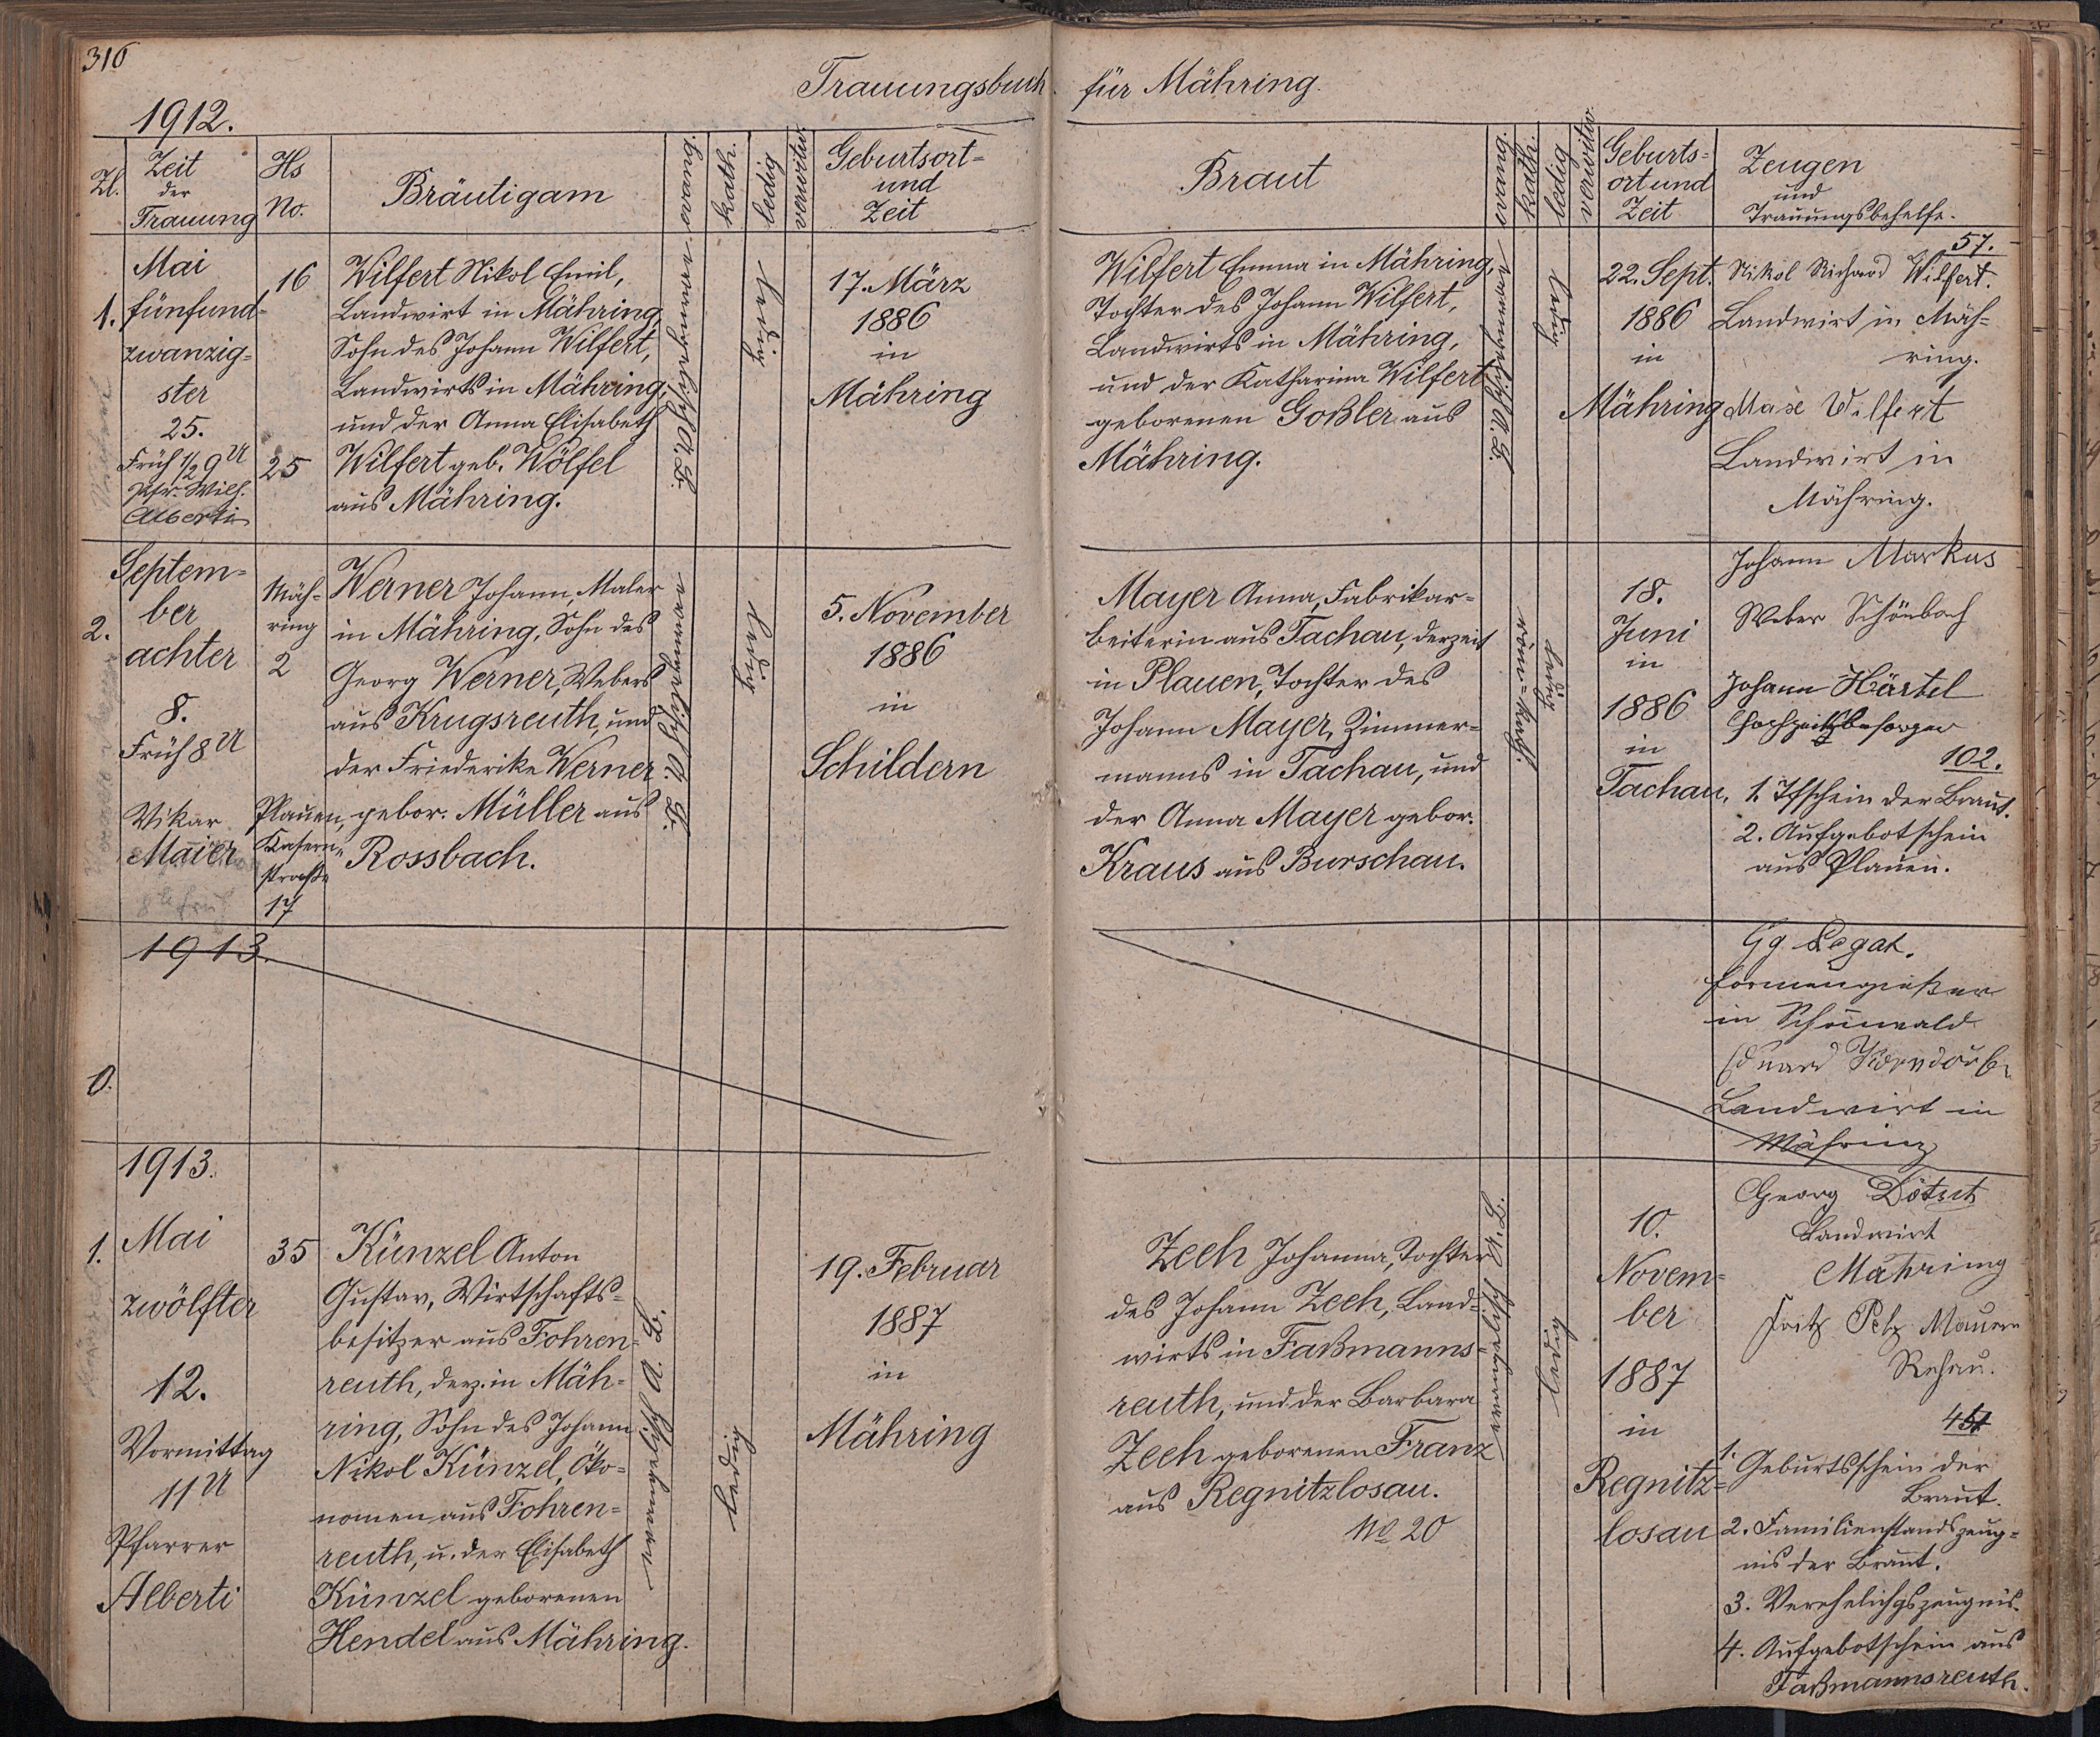 316
Trauungsbuch für Mähring.
1912.
Zl.
Zeit
der
Trauung
Hs
No.
Bräutigam
evang.
kath.
ledig
verwitw.
Geburtsort-
und
Zeit
Braut
evang.
kath.
ledig
verwitw.
Geburts-
ort und
Zeit
Zeugen
und
Trauungsbehelfe.
1.
Mai
fünfund-
zwanzig-
ster
25.
Früh 1/2 9 U
Pfr. Wilh.
Alberti
16
25
Wilfert Nikol Emil,
Landwirt in Mähring,
Sohn des Johann Wilfert,
Landwirts in Mähring,
und der Anna Elisabeth
Wilfert geb. Wölfel
aus Mähring.
evangelisch A. B.
ledig
17. März
1886
in
Mähring
Wilfert Emma in Mähring,
Tochter des Johann Wilfert,
Landwirts in Mähring,
und der Katharina Wilfert
geborenen Goßler aus
Mähring.
evangelisch A. B.
ledig
22. Sept.
1886
in
Mähring
57.
Nikol Richard Wilfert.
Landwirt in Mäh-
ring.
Wilfert
Landwirt in
Mähring.
2.
Septem-
ber
achter
8.
Früh 8 U
Vikar
Maier
8 U früh
Mäh-
ring
2
Plauen,
Kasern-
straße
17
Werner Johann, Maler
in Mähring, Sohn des
Georg Werner, Webers
aus Krugsreuth, und
der Friederike Werner
gebor. Müller aus
Rossbach.
evangelisch A. B.
ledig
5. November
1886
in
Schildern
Mayer Anna, Fabrikar-
beiterin aus Tachau, derzeit
in Plauen, Tochter des
Johann Mayer, Zimmer-
manns in Tachau, und
der Anna Mayer gebor.
Kraus aus Burschau.
röm.-kath.
ledig
18.
Juni
in
1886
in
Tachau.
Johann Markus
Weber Schönbach
Johann Härtel
Hochzeitsbesorger
102.
1. Tfschein der Braut.
2. Aufgebotschein
aus Plauen.
1913.
0.
Gg Legat.
Formengießer
in Schönwald
Eduard
Landwirt in
Mähring
1913.
1.
Mai
zwölfter
12.
Vormittag
11 U
Pfarrer
Alberti
35
Künzel Anton
Gustav, Wirtschafts-
besitzer aus Fohren-
reuth, derz. in Mäh-
ring, Sohn des Johann
Nikol Künzel, Öko-
nomen aus Fohren-
reuth, u. der Elisabeth
Künzel geborenen
Hendel aus Mähring.
evangelisch A. B.
ledig
19. Februar
1887
in
Mähring
Zeeh Johanna, Tochter
des Johann Zeeh, Land-
wirts in Faßmanns-
reuth, und der Barbara
Zeeh geborenen Franz
aus Regnitzlosau.
No 20
evangelisch A. B.
ledig
10.
Novem-
ber
1887
in
Regnitz-
losau
Georg
Landwirt
Mähring
Fritz Pelz Maurer
Rehau.
1. Geburtsschein der
Braut.
2. Familienstandszeug-
nis der Braut.
3. Verehelichgszeugnis.
4. Aufgebotschein aus
Faßmannsreuth.